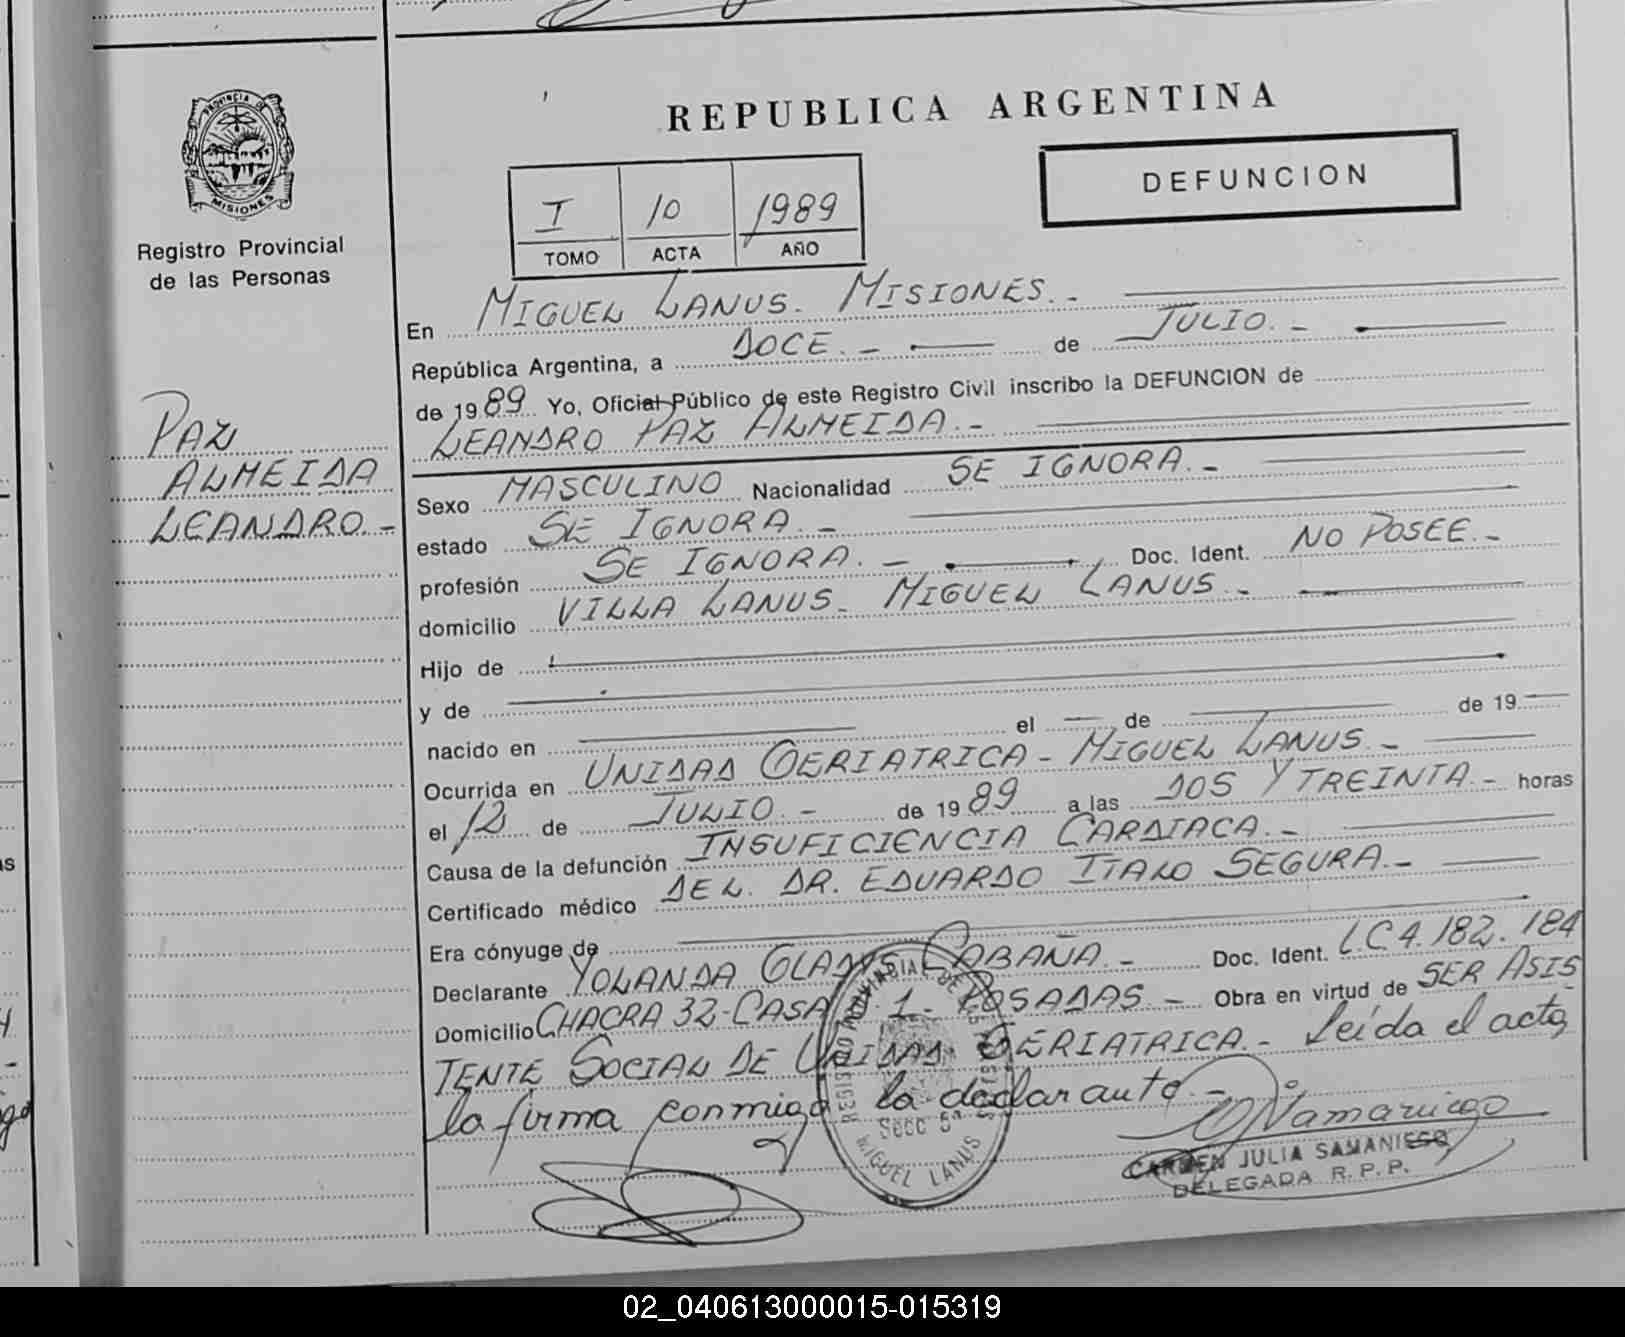 REPUBLICA ARGENTINA
PROVINCIA DE
MISIONES
Registro Provincial
de las Personas
DEFUNCION
I 10 1989
TOMO ACTA AÑO
PAZ
ALMEIDA
LEANDRO.-
En MIGUEL LANUS. MISIONES.-
República Argentina, a DOCE.- de JULIO.-
de 1989 Yo, Oficial Público de este Registro Civil inscribo la DEFUNCION de
LEANDRO PAZ ALMEIDA.-
Sexo MASCULINO Nacionalidad SE IGNORA.-
estado SE IGNORA.-
profesión SE IGNORA.- Doc. Ident. NO POSEE.-
domicilio VILLA LANUS- MIGUEL LANUS.-
Hijo de
y de
nacido en el de de 19
Ocurrida en UNIDAD GERIATRICA- MIGUEL LANUS.-
el 12 de JULIO.- de 1989 a las DOS Y TREINTA.- horas
Causa de la defunción INSUFICIENCIA CARDIACA.-
Certificado médico DEL DR. EDUARDO ITALO SEGURA.-
Era cónyuge de
Declarante YOLANDA GLADYS CABAÑA.- Doc. Ident. L.C 4.182.184
Domicilio CHACRA 32-CASA 1- POSADAS.- Obra en virtud de SER ASIS
TENTE SOCIAL DE UNIDAD GERIATRICA.- Leída el acta,
la firma conmigo la declarante.-
Secc 5ª
MIGUEL LANUS
CARMEN JULIA SAMANIEGO
DELEGADA R.P.P.
02_040613000015-015319